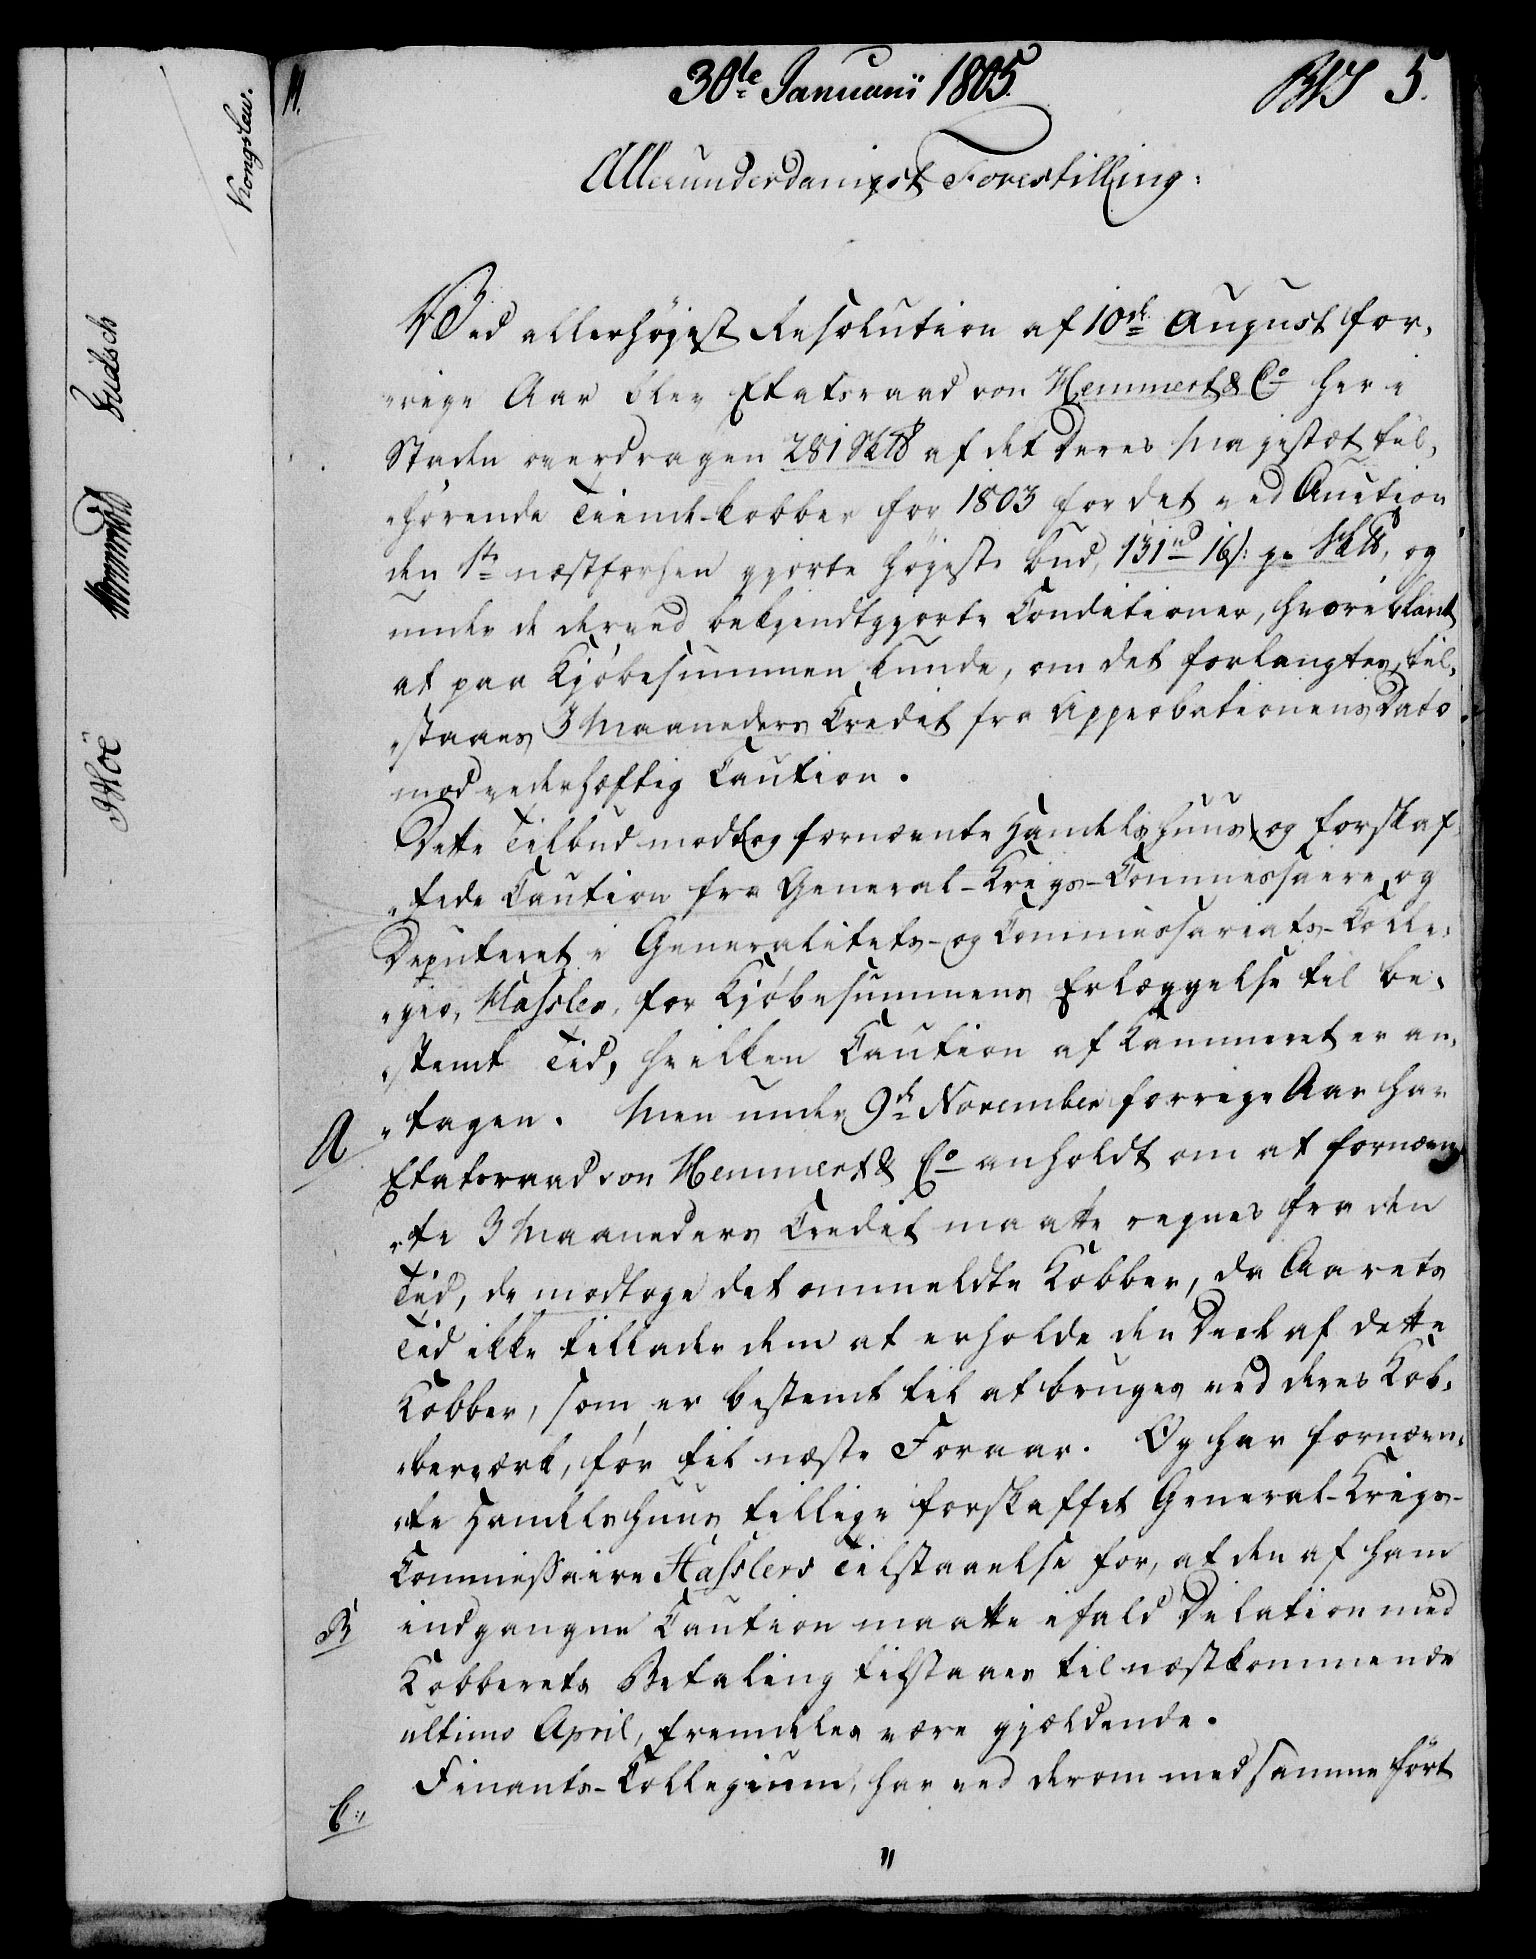 30te Januarii 1805.
5.
Allerunderdanigst Forestilling:
Ved allerhøjest Resolution af 10de August for„
„rige Aar blev Etatsraad von Hemmert & Co her i
Staden overdragen 281 Sk℔ af det Deres Majestæt til„
„hørende Tiende-Kobber for 1803 for det ved Auction
den 1te næstforhen gjorte højeste Bud, 131 rd 16 s: pr Sk℔, og
under de derved bekjendtgjorte Conditioner, hvoriblant
at paa Kjøbesummen kunde, om det forlangtes, til„
„staaes 3 Maaneders Credit fra Approbationens Dato
mod vederhæftig Caution.
Dette Tilbud modtog fornævnte Handelshuus og forskaf„
„fede Caution fra General-Krigs-Commissaire og
Deputeret i Generalitets- og Commissariats-Colle„
„gio, Hassler, for Kjøbesummens Erlæggelse til be„
„stemt Tid, hvilken Caution af Kammeret er an„
A
„tagen. Men under 9de November forrige Aar har
Etatsraad von Hemmert & Co anholdt om at fornævn„
„te 3 Maaneders Credit maatte regnes fra den
Tid, de modtoge det ommeldte Kobber, da Aarets
Tid ikke tillader dem at erholde den Deel af dette
Kobber, som er bestemt til at bruges ved deres Kob„
„berværk, før til næste Foraar. Og har fornævn„
„te Handelshuus tillige forskaffet General-Krigs-
Commissaire Hasslers Tilstaaelse for, at den af ham
B
indgangne Caution maatte ifald Dilation med
Kobberets Betaling tilstaaes til næstkommende
ultimo April, fremdeles være gjældende.
Finants-Collegium, har ved derom med samme ført
C:
"
Kongslew.
Moe